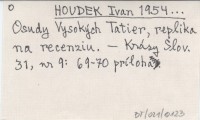 0
HOUDEK Ivan 1954...
Osudy Vysokých Tatier, replika
na recenziu. - Krásy Slov.
31, nr 9: 69-70 príloha